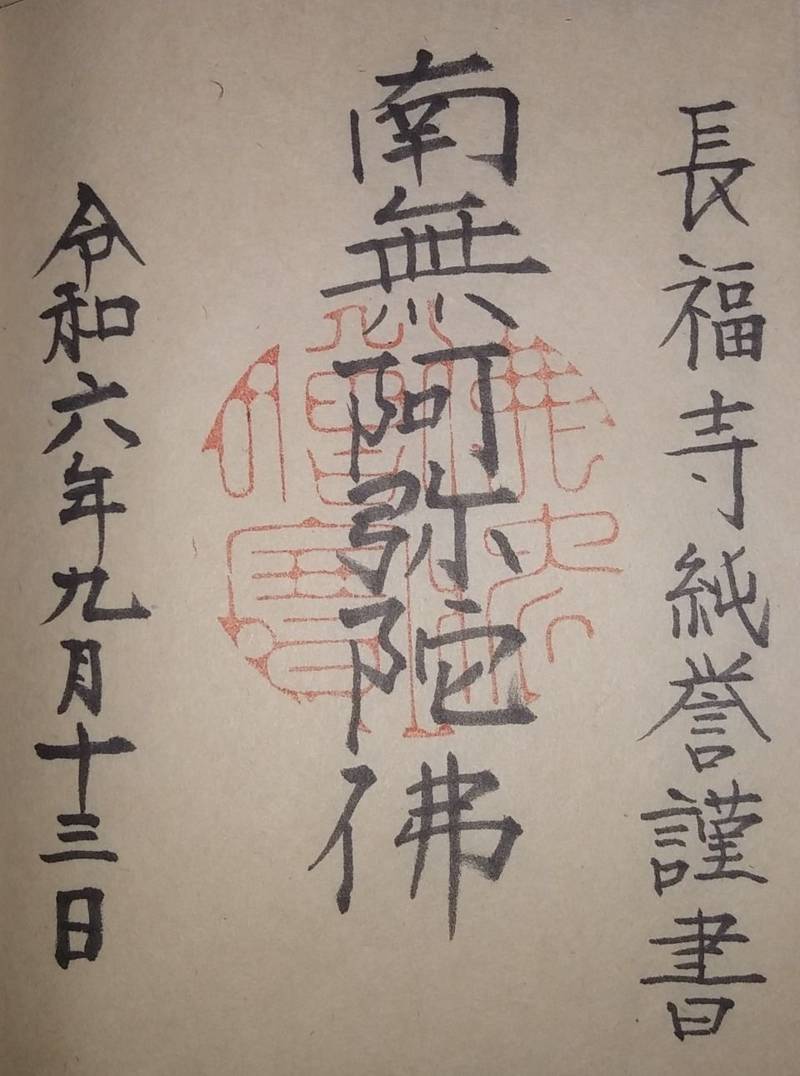 長福寺純誉謹書
南無阿弥陀佛
令和六年九月十三日
佛法僧寶